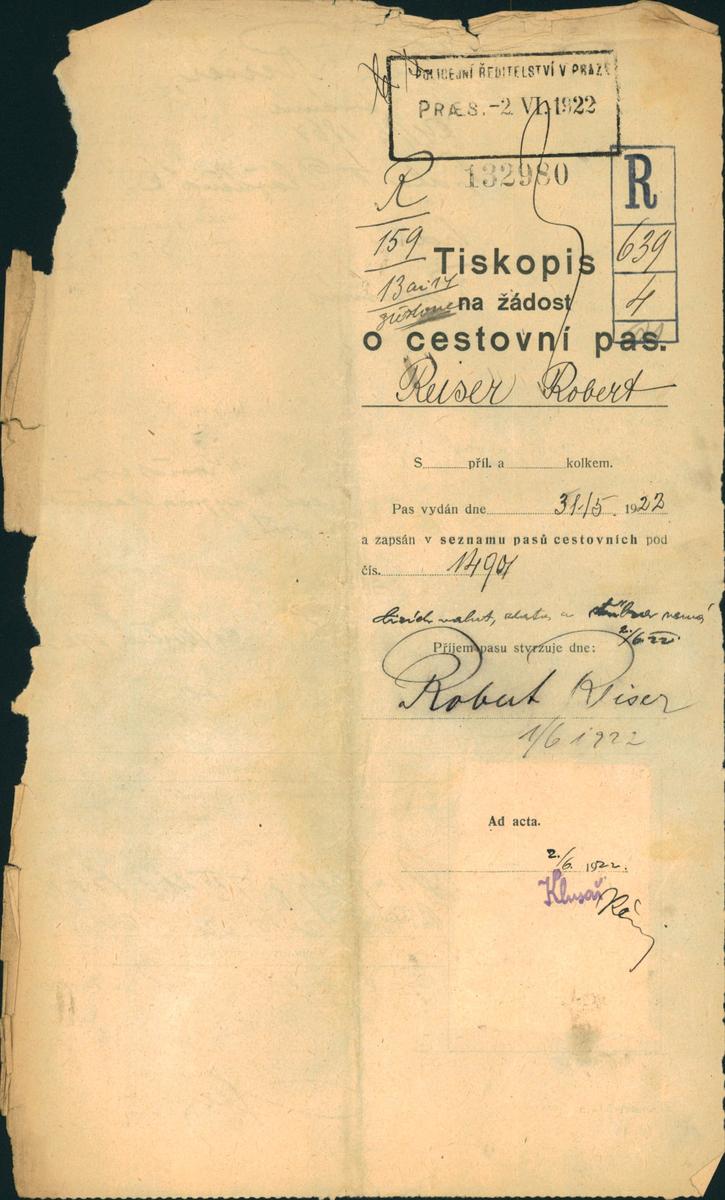 POLICEJNÍ ŘEDITELSTVÍ V PRAZE
PRÆS. -2. VI. 1922
132980
R
159
R
639
4
Tiskopis
na žádost
o cestovní pas.
Reiser Robert
S příl. a kolkem.
Pas vydán dne 31/5. 1922
a zapsán v seznamu pasů cestovních pod
čís. 14901
cizích valut, zlata a stříbra nemá
2./6. 22.
Příjem pasu stvrzuje dne:
Robert Reiser
1/6 1922
Ad acta.
2./6. 1922.
Klusáč